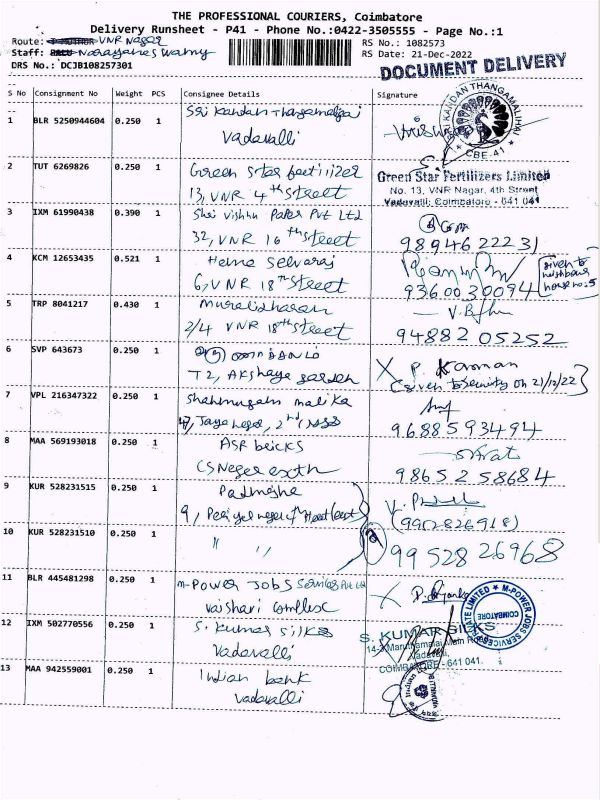 THE PROFESSIONAL COURIERS, Coimbatore
Delivery Runsheet - P41 - Phone No.:0422-3505555 - Page No.:1
Route: VNR Nagar
RS No.: 1082573
Staff: Narayanaswamy
RS Date: 21-Dec-2022
DRS No.: DCJB108257301
DOCUMENT DELIVERY
S No Consignment No Weight PCS Consignee Details Signature
1 BLR 5250944604 0.250 1 Sri Kandan Thangamaligai
Vadavalli
KANDAN THANGAMALIHAI
CBE-41
2 TUT 6269826 0.250 1 Green Star fertilizer
13, VNR 4th Street
Green Star Fertilizers Limited
No. 13, VNR Nagar, 4th Street
Vadavalli, Coimbatore - 641 041
3 IXM 61990438 0.390 1 Shri Vishnu Paper Pvt Ltd
32, VNR 16th Street
9894622231
4 KCM 12653435 0.521 1 Hema Selvaraj
6, VNR 18th Street
9360030094
given to
neighbour
house no:5
5 TRP 8041217 0.430 1 Muralidharan
2/4 VNR 18th Street
9488205252
6 SVP 643673 0.250 1
T2, Akshaya garden
P. Kannan
(given to security on 21/12/22)
7 VPL 216347322 0.250 1 Shanmugam malika
Jaya nagar, 2nd
9688593494
8 MAA 569193018 0.250 1 ASR bricks
CS Nagar exth
9865258684
9 KUR 528231515 0.250 1 Padmajha
9, Periyar nagar
10 KUR 528231510 0.250 1 " "
9952826968
11 BLR 445481298 0.250 1 M-Power Jobs Services Pvt Ltd
Vaishari Complex
M-POWER JOBS SERVICES PRIVATE LIMITED
COIMBATORE
12 IXM 502770556 0.250 1 S. Kumar Silks
Vadavalli
S. KUMAR SILKS
Main Road
Vadavalli
COIMBATORE - 641 041.
13 MAA 942559001 0.250 1 Indian bank
Vadavalli